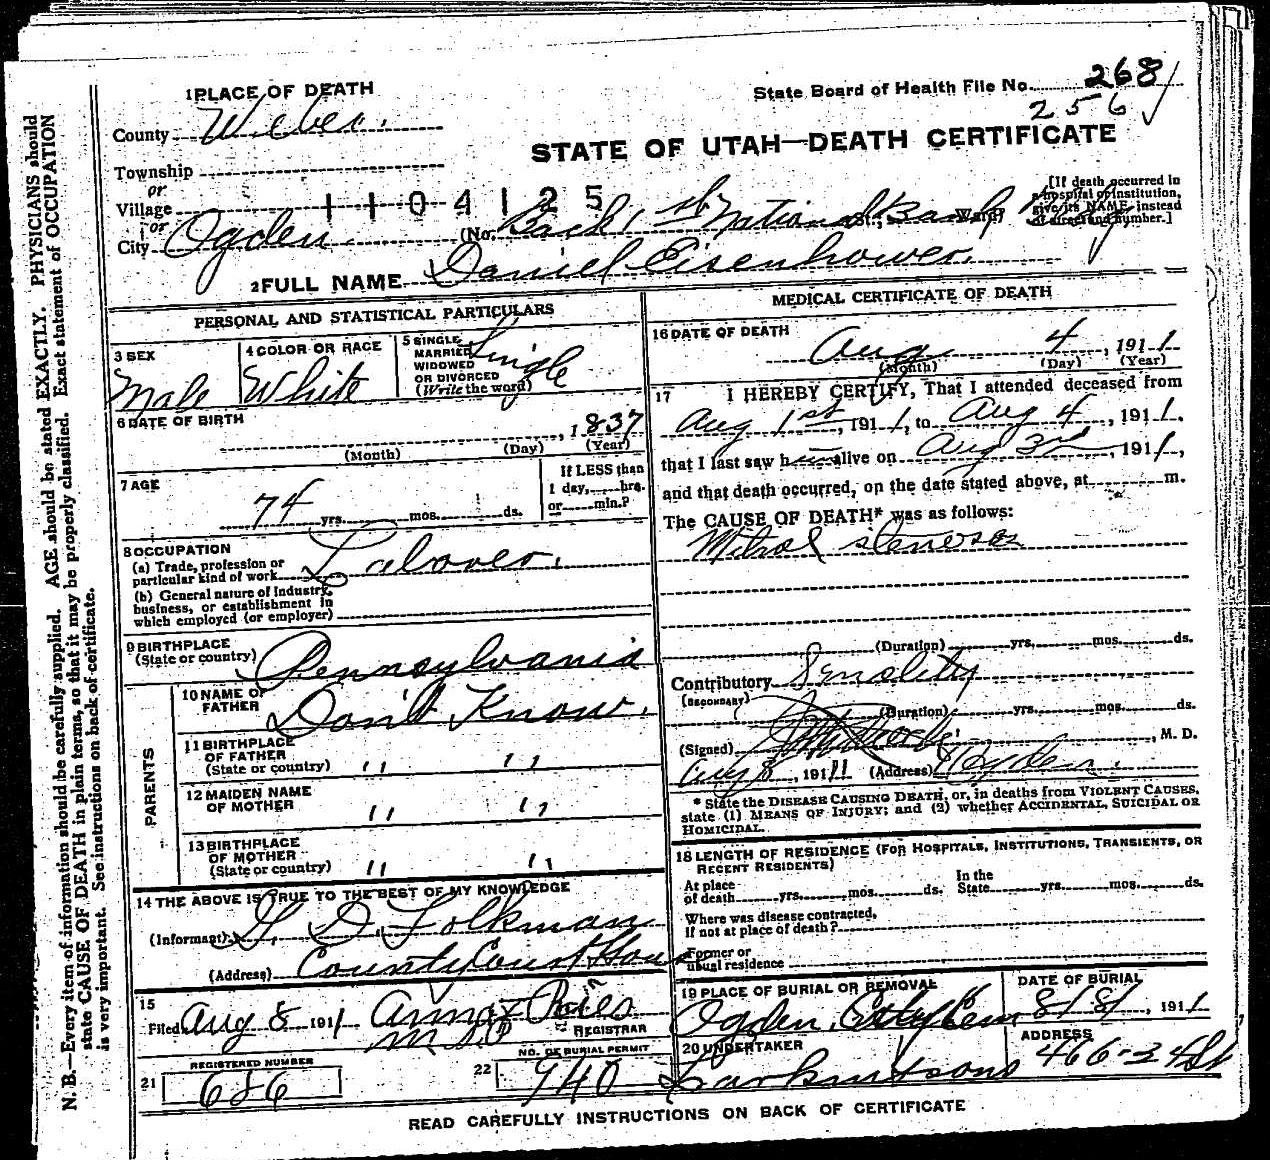 1 PLACE OF DEATH
State Board of Health File No. 268
256
County Weber.
STATE OF UTAH—DEATH CERTIFICATE
Township
or
Village
1104125
or
City Ogden (No. Back 1st National Bank Bldg St.; Ward)
[If death occurred in a hospital or institution, give its NAME instead of street and number.]
2 FULL NAME Daniel Eisenhower.
PERSONAL AND STATISTICAL PARTICULARS
3 SEX Male
4 COLOR OR RACE White
5 SINGLE, MARRIED, WIDOWED OR DIVORCED (Write the word) Single
6 DATE OF BIRTH
, 1837
(Month) (Day) (Year)
7 AGE
74 yrs. mos. ds.
If LESS than 1 day, hrs. or min.?
8 OCCUPATION
(a) Trade, profession or
particular kind of work Laborer.
(b) General nature of industry,
business, or establishment in
which employed (or employer)
9 BIRTHPLACE
(State or country) Pennsylvania
PARENTS
10 NAME OF
FATHER Don't Know.
11 BIRTHPLACE
OF FATHER
(State or country) " "
12 MAIDEN NAME
OF MOTHER " "
13 BIRTHPLACE
OF MOTHER
(State or country) " "
14 THE ABOVE IS TRUE TO THE BEST OF MY KNOWLEDGE
(Informant) D. Folkman
(Address) County Court House
15
Filed Aug 8 1911
REGISTRAR
REGISTERED NUMBER
21 686
NO. OF BURIAL PERMIT
22 940
MEDICAL CERTIFICATE OF DEATH
16 DATE OF DEATH
Aug 4, 1911
(Month) (Day) (Year)
17 I HEREBY CERTIFY, That I attended deceased from
Aug 1st, 1911, to Aug 4, 1911.
that I last saw him alive on Aug 3rd, 1911,
and that death occurred, on the date stated above, at m.
The CAUSE OF DEATH* was as follows:
Mitral
(Duration) yrs. mos. ds.
Contributory
(SECONDARY)
(Duration) yrs. mos. ds.
(Signed) , M. D.
Aug 8, 1911 (Address) Ogden.
* State the DISEASE CAUSING DEATH, or, in deaths from VIOLENT CAUSES,
state (1) MEANS OF INJURY; and (2) whether ACCIDENTAL, SUICIDAL OR
HOMICIDAL.
18 LENGTH OF RESIDENCE (FOR HOSPITALS, INSTITUTIONS, TRANSIENTS, OR
RECENT RESIDENTS)
At place of death yrs. mos. ds. In the State yrs. mos. ds.
Where was disease contracted,
if not at place of death?
Former or
usual residence
19 PLACE OF BURIAL OR REMOVAL
Ogden, City Cem
DATE OF BURIAL
8/8/, 1911
20 UNDERTAKER
ADDRESS
466-24 St
READ CAREFULLY INSTRUCTIONS ON BACK OF CERTIFICATE
N. B.—Every item of information should be carefully supplied. AGE should be stated EXACTLY. PHYSICIANS should
state CAUSE OF DEATH in plain terms, so that it may be properly classified. Exact statement of OCCUPATION
is very important. See instructions on back of certificate.